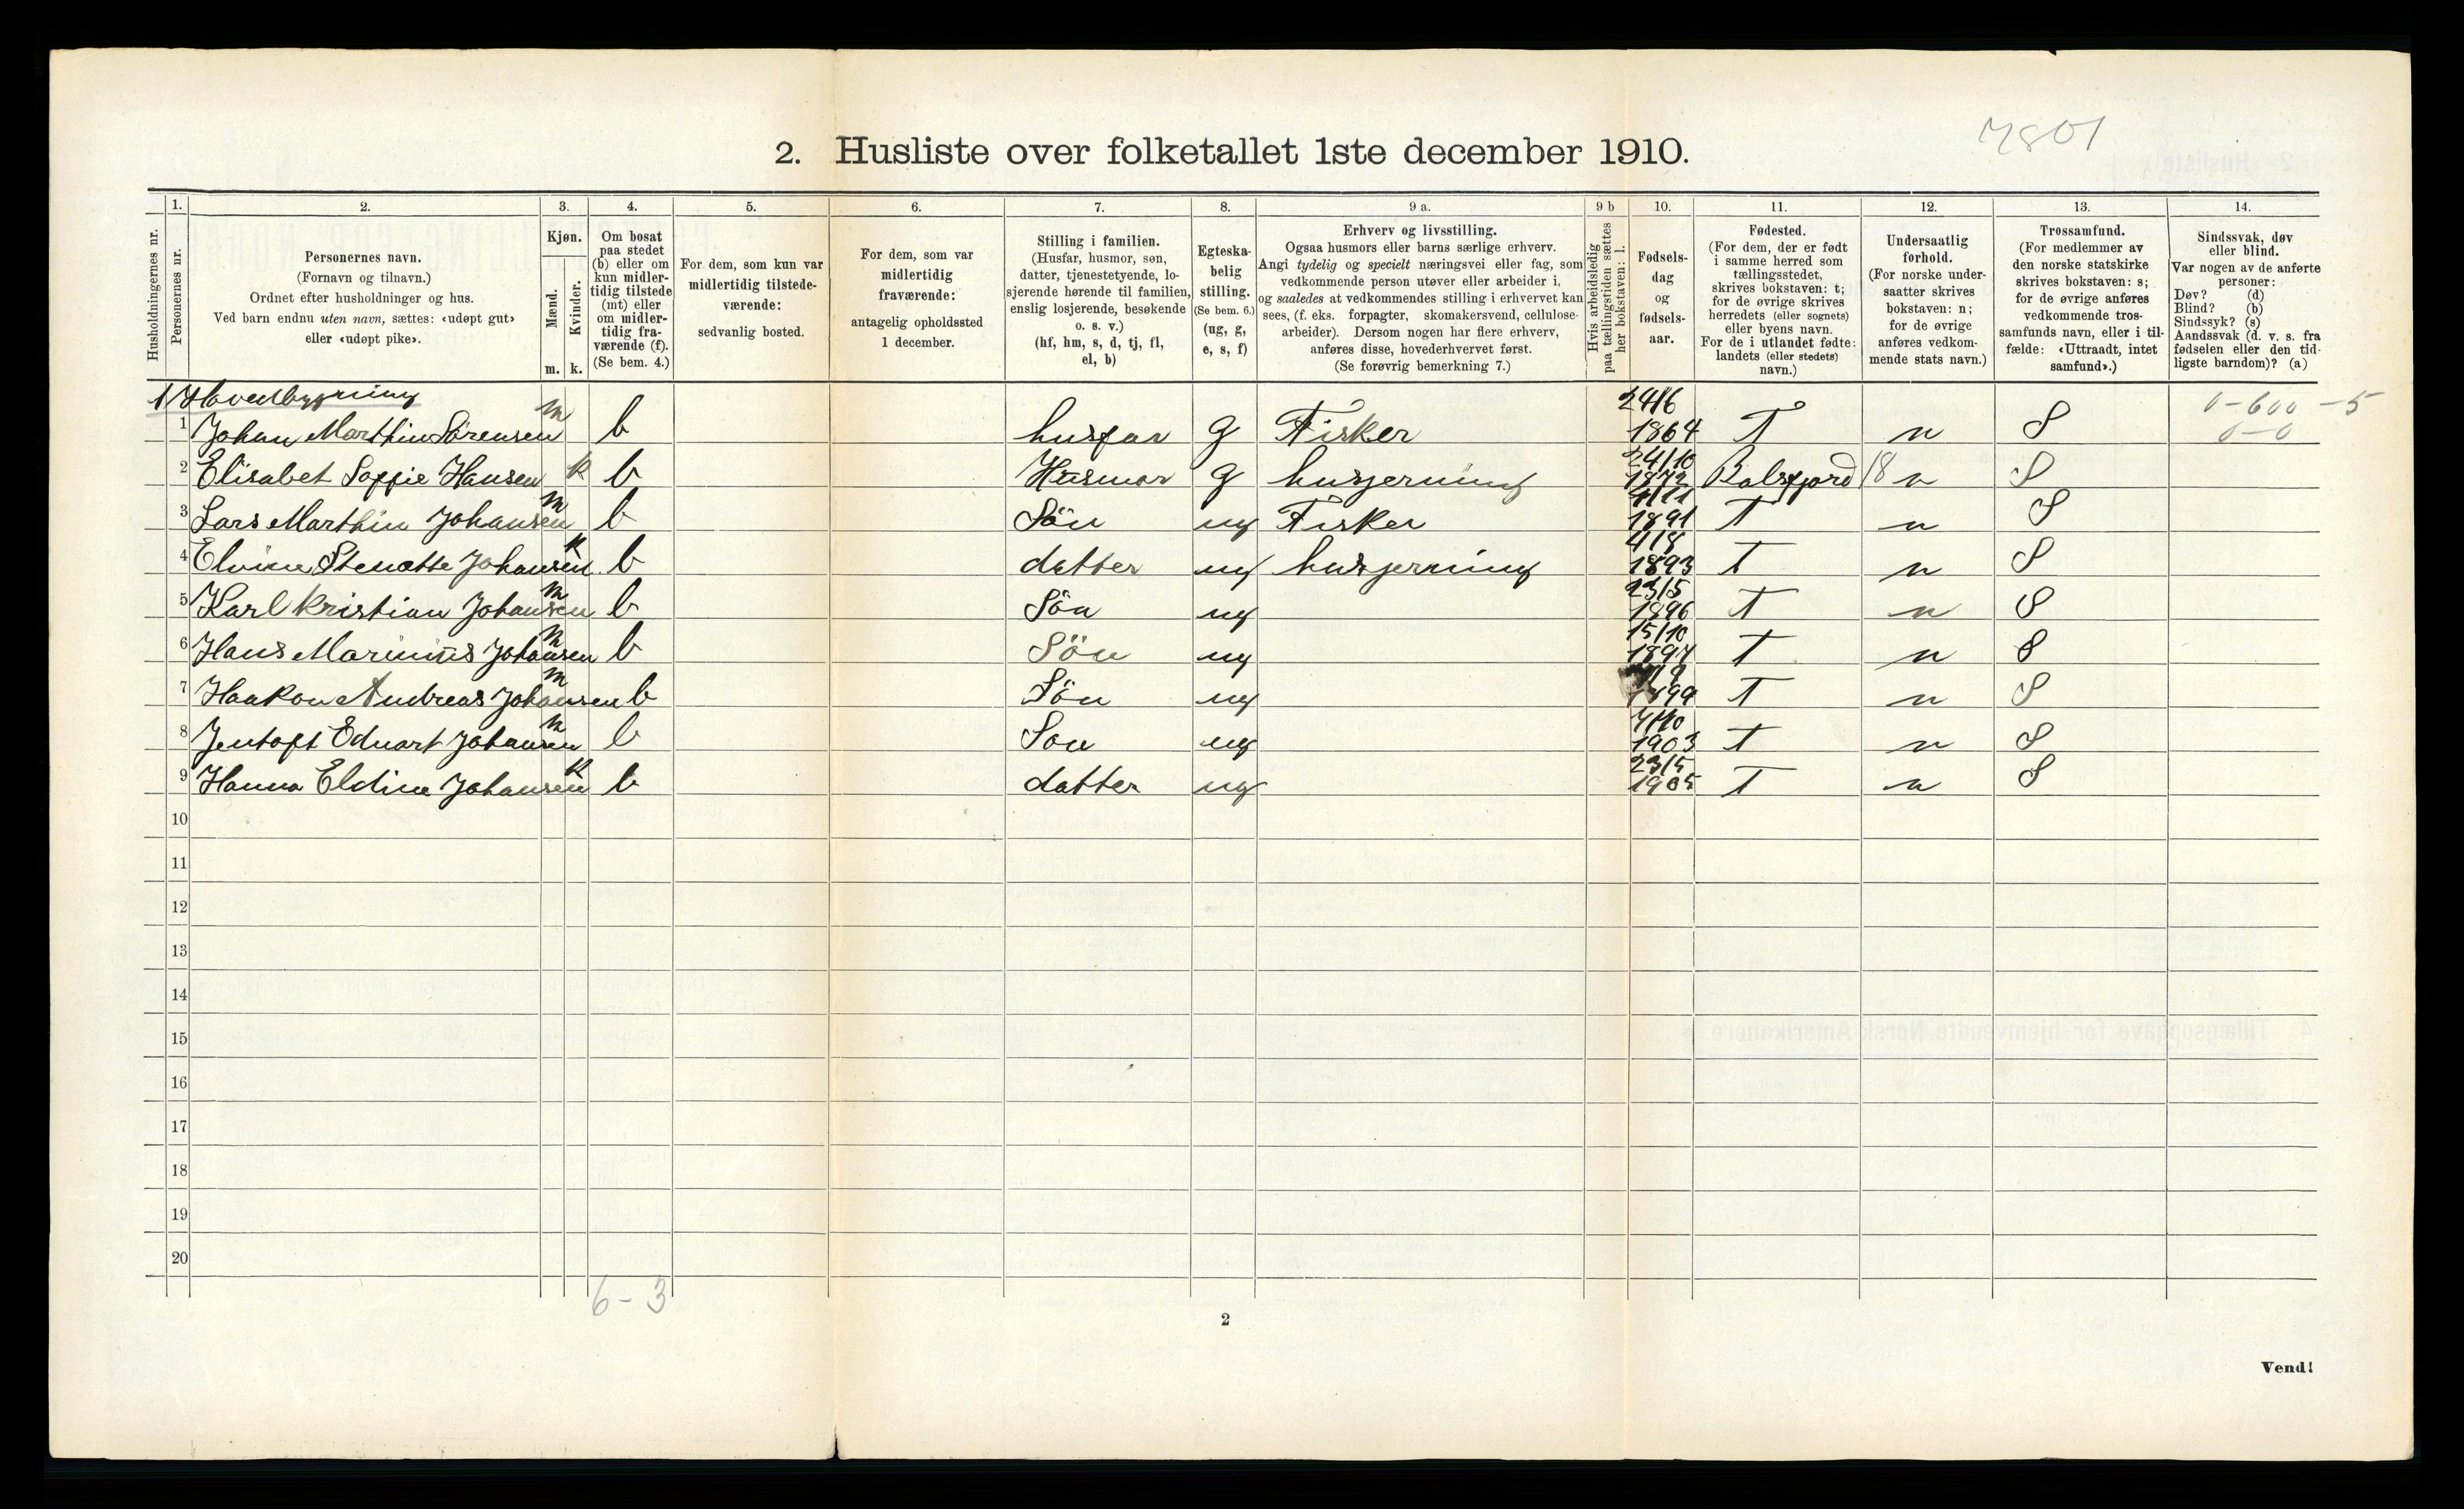 7801
2. Husliste over folketallet 1ste december 1910.
Husholdningernes nr.
1.
Personernes nr.
2.
Personernes navn.
(Fornavn og tilnavn.)
Ordnet efter husholdninger og hus.
Ved barn endnu uten navn, sættes: «udøpt gut»
eller «udøpt pike».
3.
Kjøn.
Mænd.
Kvinder.
m. k.
4.
Om bosat
paa stedet
(b) eller om
kun midler-
tidig tilstede
(mt) eller
om midler-
tidig fra-
værende (f).
(Se bem. 4.)
5.
For dem, som kun var
midlertidig tilstede-
værende:
sedvanlig bosted.
6.
For dem, som var
midlertidig
fraværende:
antagelig opholdssted
1 december.
7.
Stilling i familien.
(Husfar, husmor, søn,
datter, tjenestetyende, lo-
sjerende hørende til familien,
enslig losjerende, besøkende
o. s. v.)
(hf, hm, s, d, tj, fl,
el, b)
8.
Egteska-
belig
stilling.
(Se bem. 6.)
(ug, g,
e, s, f)
9 a.
Erhverv og livsstilling.
Ogsaa husmors eller barns særlige erhverv.
Angi tydelig og specielt næringsvei eller fag, som
vedkommende person utøver eller arbeider i,
og saaledes at vedkommendes stilling i erhvervet kan
sees, (f. eks. forpagter, skomakersvend, cellulose-
arbeider). Dersom nogen har flere erhverv,
anføres disse, hovederhvervet først.
(Se forøvrig bemerkning 7.)
9 b
Hvis arbeidsledig
paa tællingstiden sættes
her bokstaven: l.
10.
Fødsels-
dag
og
fødsels-
aar.
11.
Fødested.
(For dem, der er født
i samme herred som
tællingsstedet,
skrives bokstaven: t;
for de øvrige skrives
herredets (eller sognets)
eller byens navn.
For de i utlandet fødte:
landets (eller stedets)
navn.)
12.
Undersaatlig
forhold.
(For norske under-
saatter skrives
bokstaven: n;
for de øvrige
anføres vedkom-
mende stats navn.)
13.
Trossamfund.
(For medlemmer av
den norske statskirke
skrives bokstaven: s;
for de øvrige anføres
vedkommende tros-
samfunds navn, eller i til-
fælde: «Uttraadt, intet
samfund».)
14.
Sindssvak, døv
eller blind.
Var nogen av de anførte
personer:
Døv? (d)
Blind? (b)
Sindssyk? (s)
Aandssvak (d. v. s. fra
fødselen eller den tid-
ligste barndom)? (a)
1 Hovedbygning
0-600-5
0-0
1 Johan Marthin Sørensen m b husfar g Fisker 24/6 1864 T n S
2 Elisabet Soffie Hansen k b Husmor g husjerning 24/10 1872 Balsfjord 18 n S
3 Lars Marthin Johansen m b Sön ug Fisker 4/11 1891 T n S
4 Elvine Stenatte Johansen k b datter ug husjerning 4/8 1893 T n S
5 Karl Kristian Johansen m b Sön ug 23/5 1896 T n S
6 Hans Marinius Johansen m b Sön ug 15/10 1897 T n S
7 Haakon Andreas Johansen m b Sön ug 1899 T n S
8 Jentoft Eduart Johansen m b Son ug 7/10 1903 T n S
9 Hanna Eldine Johansen k b datter ug 23/5 1905 T n S
10
11
12
13
14
15
16
17
18
19
20
6-3
2
Vend!